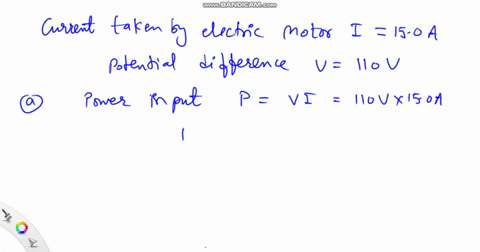 WWW.BANDICAM.COM
Current taken by electric motor I = 15.0 A
Potential difference V = 110 V
(a) Power input P = VI = 110V × 15.0A